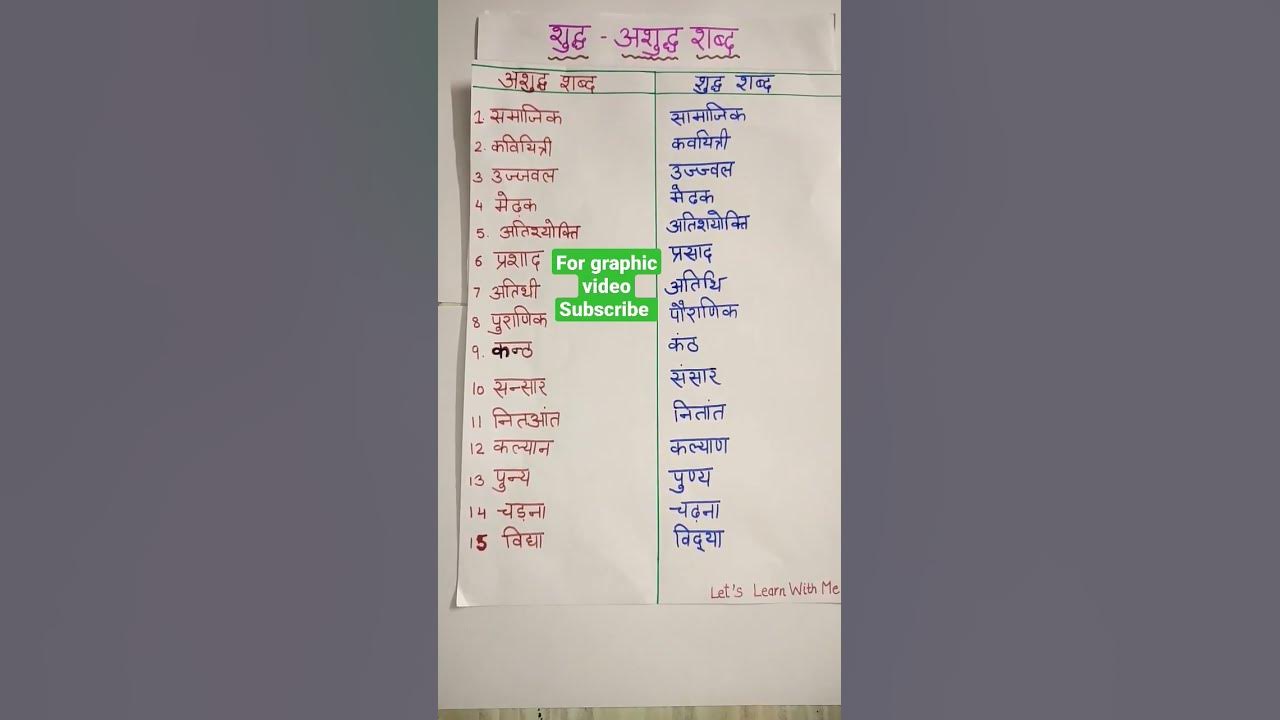 शुद्ध - अशुद्ध शब्द
अशुद्ध शब्द शुद्ध शब्द
1. समाजिक सामाजिक
2. कवियित्री कवयित्री
3 उज्जवल उज्ज्वल
4 मेढ़क मेढक
5. अतिश्योक्ति अतिशयोक्ति
6 प्रशाद प्रसाद
7 अतिथी अतिथि
8 पुराणिक पौराणिक
9. कन्ठ कंठ
10 सन्सार संसार
11 नितआंत नितांत
12 कल्यान कल्याण
13 पुन्य पुण्य
14 चड़ना चढ़ना
15 विद्या विद्‌या
For graphic
video
Subscribe
Let's Learn With Me